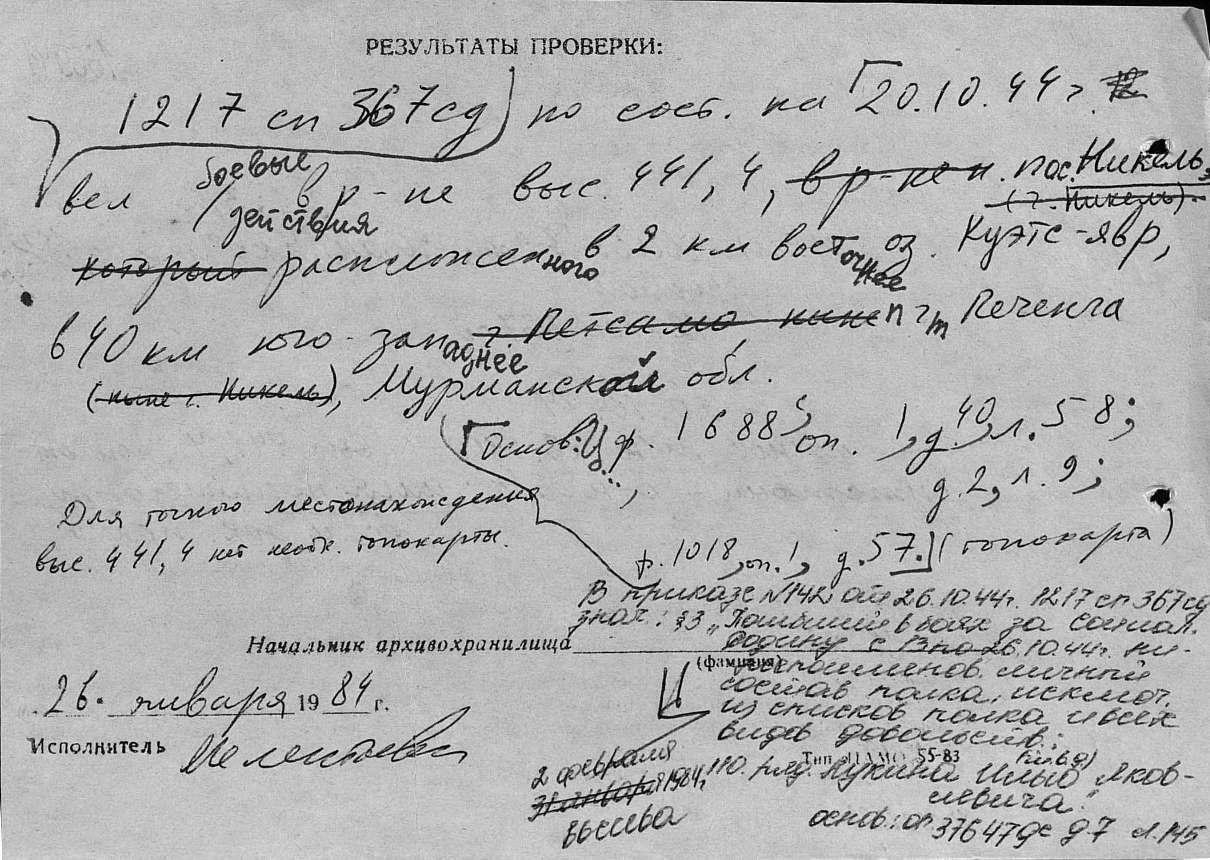 РЕЗУЛЬТАТЫ ПРОВЕРКИ:
1217 сп 367 сд) по сост. на 20.10.44 г.
вел боевые действия в р-не выс. 441,4, в р-не н. пос. Никель,
(г. Никель).
который расположенного в 2 км восточнее оз. Куэтс-явр,
в 40 км юго-западнее г. Петсамо ныне пгт Печенга
(ныне г. Никель), Мурманской обл.
Основ: ф. 1688, оп. 1, д. 40, л. 58;
д. 2, л. 9;
ф. 1018, оп. 1, д. 57.] (топокарта)
Для точного местонахождения
выс. 441,4 нет необх. топокарты.
В приказе №142 от 26.10.44г. 1217 сп 367 сд
знач.: §3 „Погибший в боях за Социал.
родину с по 26.10.44г. ни-
жепоименов. личный
состав полка, исключ.
из списков полка и всех
видов довольств.:
110. ряд. Лукина Илью Яков-
левича."
основ: оп 37647дс д 7 л. 145
Начальник архивохранилища
(фамилия)
26. января 1984 г.
Исполнитель
Тип. ЦАМО 55-83
2 февраля
31 января 1984г.